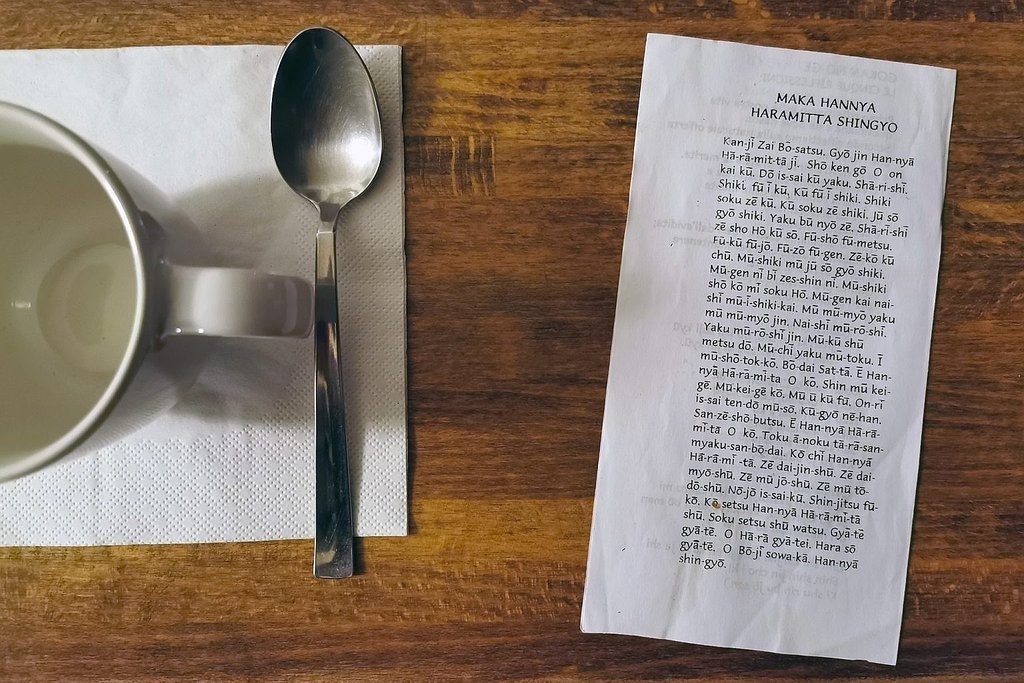 MAKA HANNYA
HARAMITTA SHINGYO
Kan-jī Zai Bō-satsu. Gyō jin Han-nyā
Hā-rā-mit-tā jī. Shō ken gō O on
kai kū. Dō is-sai kū yaku. Shā-ri-shī.
Shiki fū ī kū, Kū fū ī shiki. Shiki
soku zē kū. Kū soku zē shiki. Jū sō
gyō shiki. Yaku bū nyō zē. Shā-rī-shī
zē sho Hō kū sō. Fū-shō fū-metsu.
Fū-kū fū-jō. Fū-zō fū-gen. Zē-kō kū
chū. Mū-shiki mū jū sō gyō shiki.
Mū-gen nī bī zes-shin nī. Mū-shiki
shō kō mī soku Hō. Mū-gen kai nai-
shī mū-ī-shiki-kai. Mū mū-myō yaku
mū mū-myō jin. Nai-shī mū-rō-shī.
Yaku mū-rō-shī jin. Mū-kū shū
metsu dō. Mū-chī yaku mū-toku. Ī
mū-shō-tok-kō. Bō-dai Sat-tā. Ē Han-
nyā Hā-rā-mī-ta O kō. Shin mū kei-
gē. Mū-kei-gē kō. Mū ū kū fū. On-rī
is-sai ten-dō mū-sō. Kū-gyō nē-han.
San-zē-shō-butsu. Ē Han-nyā Hā-rā-
mī-tā O kō. Toku ā-noku tā-rā-san-
myaku-san-bō-dai. Kō chī Han-nyā
Hā-rā-mī -tā. Zē dai-jin-shū. Zē dai-
myō-shū. Zē mū jō-shū. Zē mū tō-
dō-shū. Nō-jō is-sai-kū. Shin-jitsu fū-
kō. Kō setsu Han-nyā Hā-rā-mī-tā
shū. Soku setsu shū watsu. Gyā-tē
gyā-tē. O Hā-rā gyā-tei. Hara sō
gyā-tē. O Bō-jī sowa-kā. Han-nyā
shin-gyō.